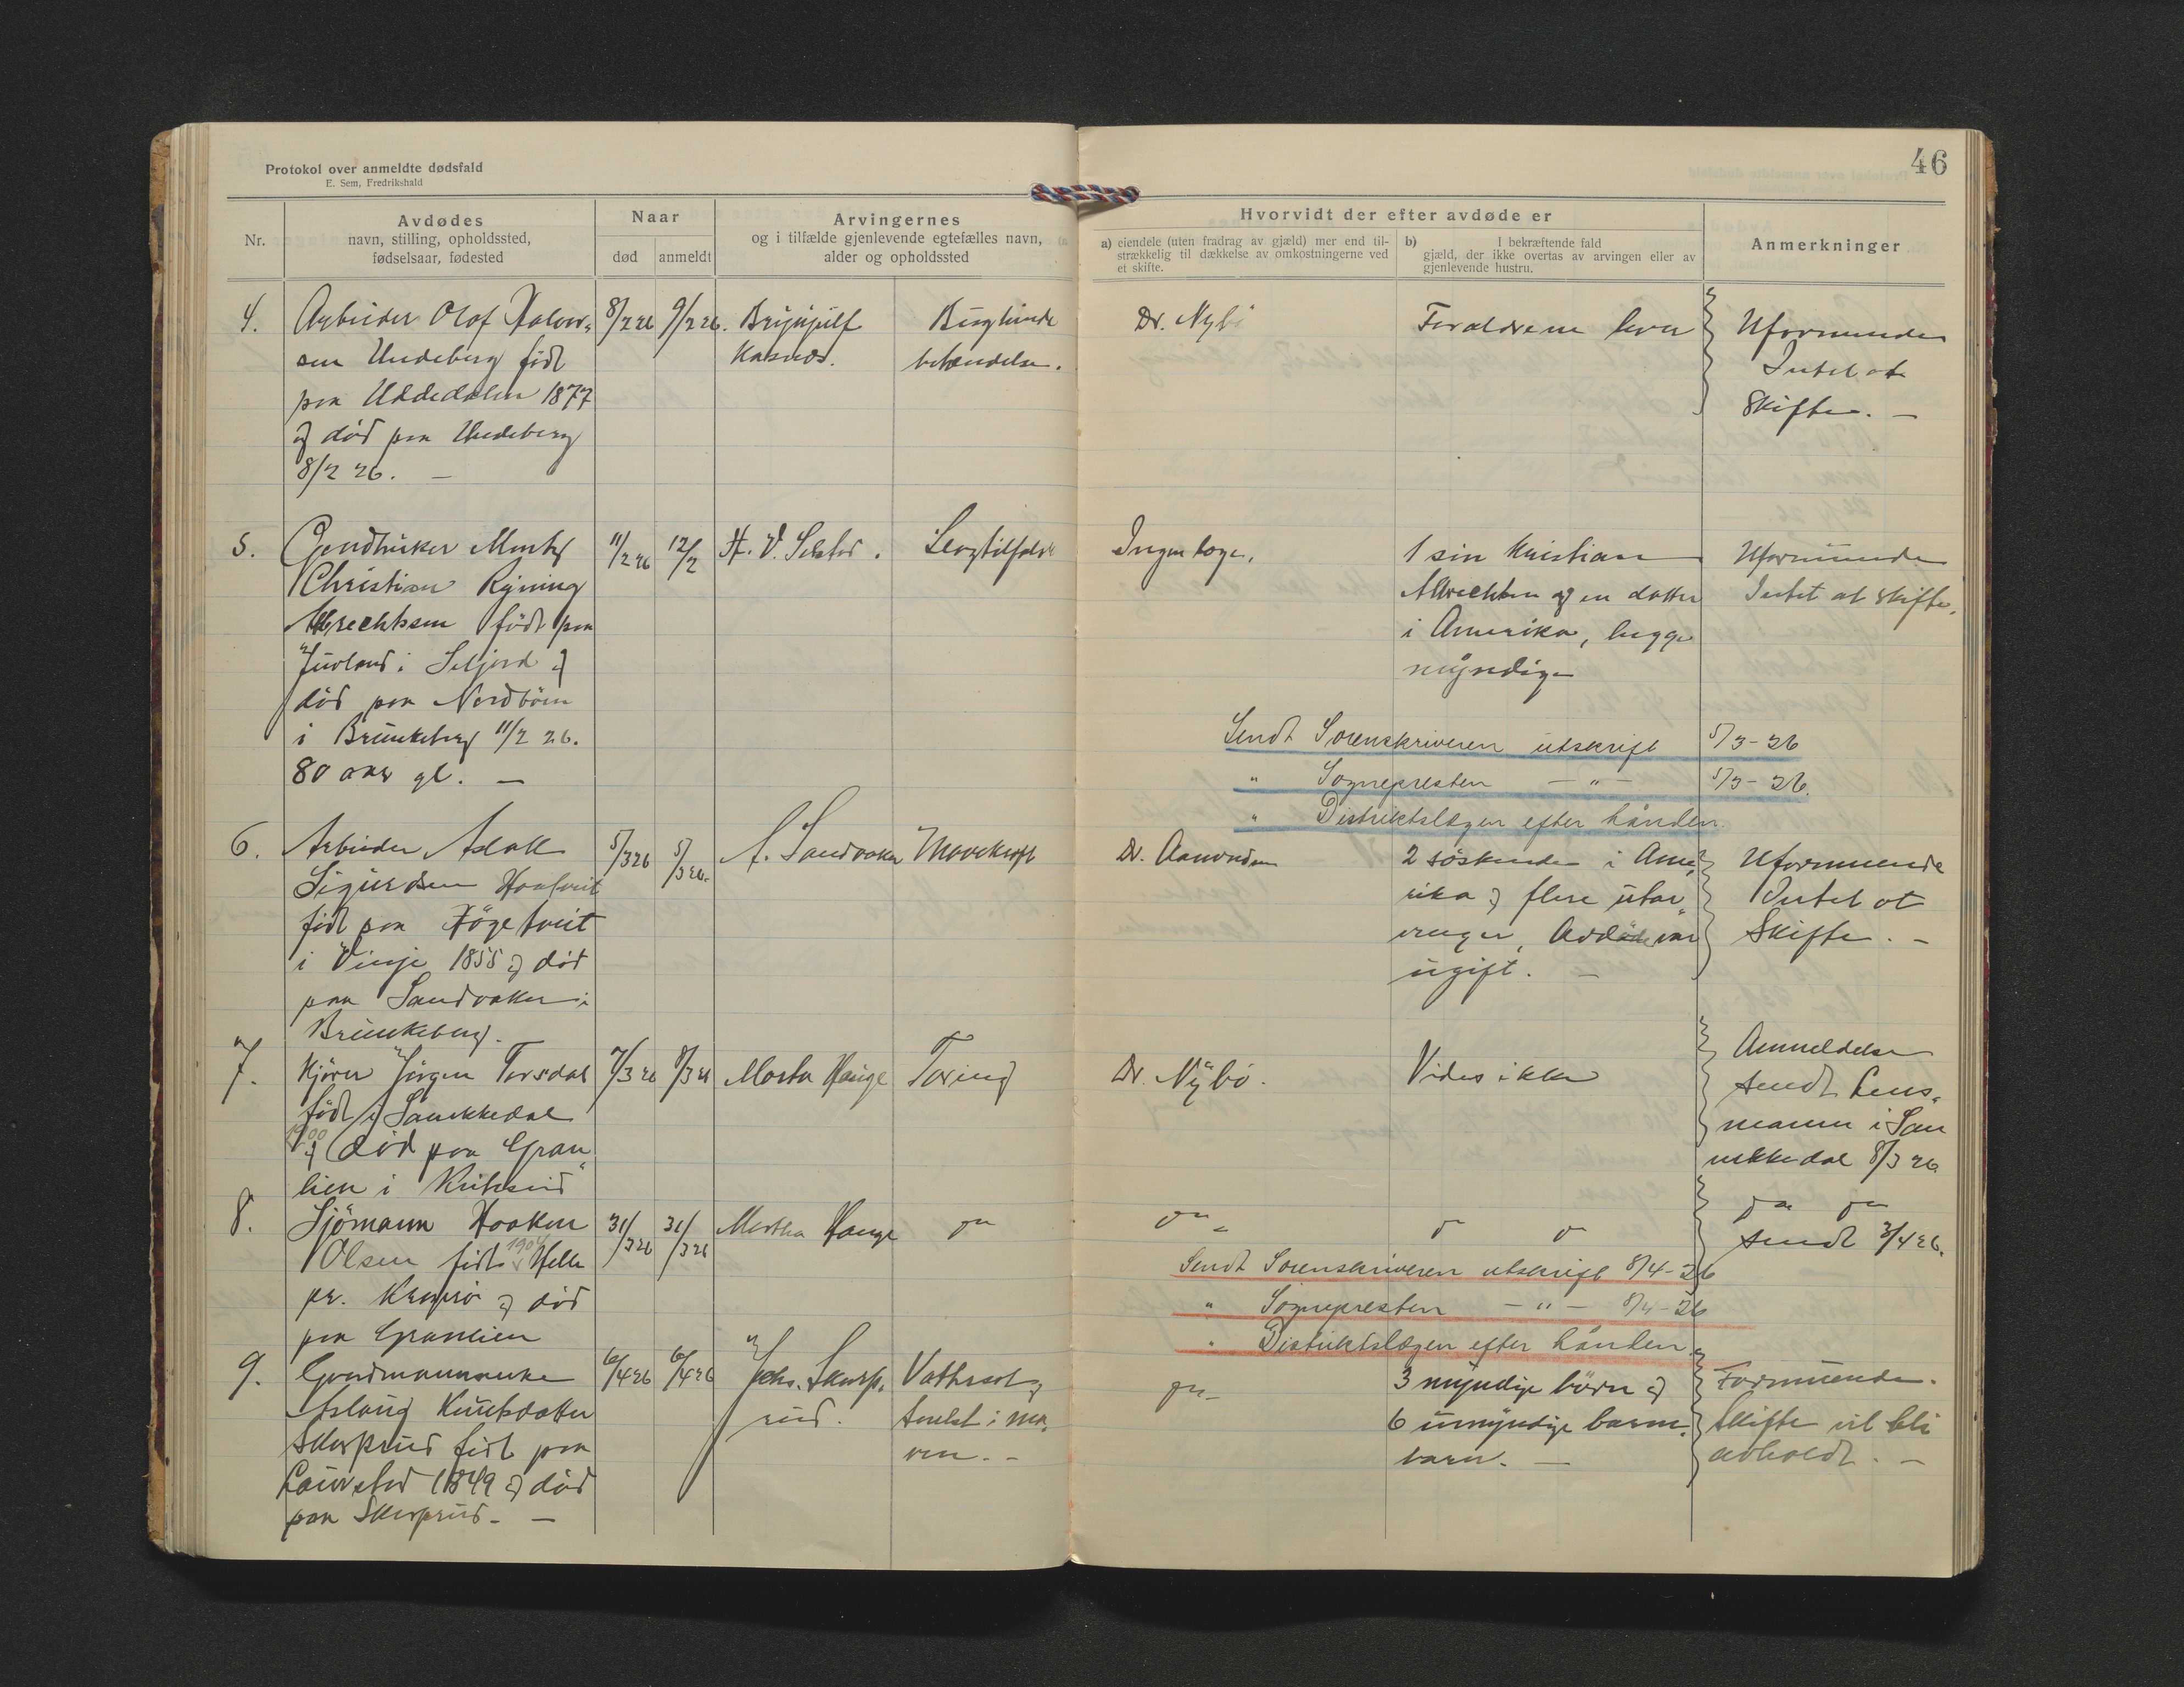 Protokol over anmeldte dødsfald
E. Sem, Fredrikshald
46
Nr.
Avdødes
navn, stilling, opholdssted,
fødselsaar, fødested
Naar
død
anmeldt
Arvingernes
og i tilfælde gjenlevende egtefælles navn,
alder og opholdssted
Hvorvidt der efter avdøde er
a) eiendele (uten fradrag av gjæld) mer end til-
strækkelig til dækkelse av omkostningerne ved
et skifte.
b) I bekræftende fald
gjæld, der ikke overtas av arvingen eller av
gjenlevende hustru.
Anmerkninger
4.
Arbeider Olof Halvor-
sen Undeberg født
paa Uddedalen 1877
og død paa Undeberg
8/2 26. —
8/2 26
9/2 26.
Brynjulf
Kasnes.
Bughinde
betændelse.
Dr. Nybö
Foraldrene lever
Uformuende
Intet at
Skifte. —
5.
Christian Ryning
Albrechtsen født paa
Juvland i Seljord og
død paa Nordböen
i Brunkeberg 11/2 26.
80 aar gl. —
11/2 26
12/2
H. V.
Slagtilfælde
Ingen læge.
1 sön Kristian
Albrechtsen og en datter
i Amerika, begge
myndige
Uformuende
Intet at skifte.
Sendt Sorenskriveren utskrift 5/3-26
" Sognepresten — " — 5/3-26.
" Distriktslægen efter hånden.
6.
Arbeider Aslak
Sigurdsen
født paa Högetveit
i Vinje 1855 og död
paa Sandvaken i
Brunkeberg.
5/3 26
5/3 26.
A. Sandvaken
Mavekreft
Dr. Aamundsen
2 söskende i Ame-
rika og flere utar-
vinger, Avdöde var
ugift. —
Uformuende
Intet at
Skifte. —
7.
Kjörer Jörgen Torsdal
født i Sannikedal
1900
og død paa Gran-
lien i Kviteseid
7/3 26
8/3 26
Marta Hauge
Tæring
Dr. Nybö.
Vides ikke
Anmeldelse
sendt Lens-
mannen i San
nikkedal 8/3 26.
8.
Sjömann Haaken
Olsen født 1904 Helle
pr. Kragerö og död
paa Granlien
31/3 26
31/3 26
Martha Hauge
do
do
do do
do do
sendt 3/4 26.
Sendt Sorenskriveren utskrift 8/4-26
" Sognepresten — " — 8/4-26
" Distriktslægen efter hånden.
9.
Gardmannsenke
Aslaug Knutsdatter
Skarprud født paa
Laurstad 1849 og död
paa Skarprud. —
6/4 26
6/4 26
Johs. Skarp-
rud.
Vathersot og
svulst i ma-
ven. —
do —
3 myndige börn og
6 umyndige barne-
barn. —
Formuende.
Skifte vil bli
avholdt. —